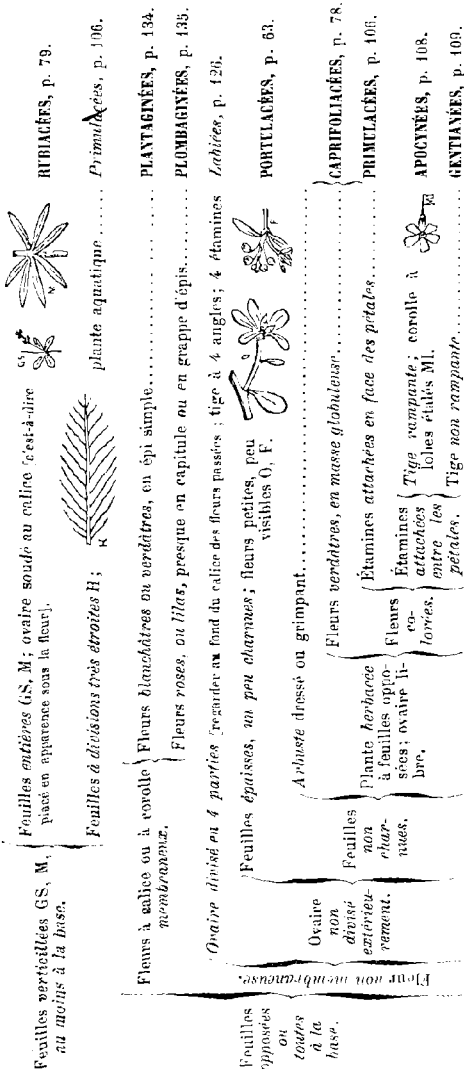 Feuilles verticillées GS, M,
au moins à la base.
Feuilles entières GS, M; ovaire soudé au calice [c'est-à-dire
placé en apparence sous la fleur].
GS
M
RUBIACÉES, p. 79.
Feuilles à divisions très étroites H;
H
plante aquatique......
Primulacées, p. 106.
Feuilles
opposées
ou
toutes
à la
base.
Fleurs à calice ou à corolle
membraneux.
Fleurs blanchâtres ou verdâtres, en épi simple..................
PLANTAGINÉES, p. 134.
Fleurs roses, ou lilas, presque en capitule ou en grappe d'épis.
PLOMBAGINÉES, p. 135.
Fleur non membraneuse.
Ovaire divisé en 4 parties [regarder au fond du calice des fleurs passées; tige à 4 angles; 4 étamines
Labiées, p. 126.
Ovaire
non
divisé
extérieu-
rement.
Feuilles épaisses, un peu charnues; fleurs petites, peu
visibles O, F.
F
PORTULACÉES, p. 63.
Feuilles
non
char-
nues.
Arbuste dressé ou grimpant..............................
Plante herbacée
à feuilles oppo-
sées; ovaire li-
bre.
Fleurs verdâtres, en masse globuleuse..................
CAPRIFOLIACÉES, p. 78.
Fleurs
co-
lorées.
Étamines attachées en face des pétales..........
PRIMULACÉES, p. 106.
Étamines
attachées
entre les
pétales.
Tige rampante; corolle à
lobes étalés MI.
MI
APOCYNÉES, p. 108.
Tige non rampante..........
GENTIANÉES, p. 109.